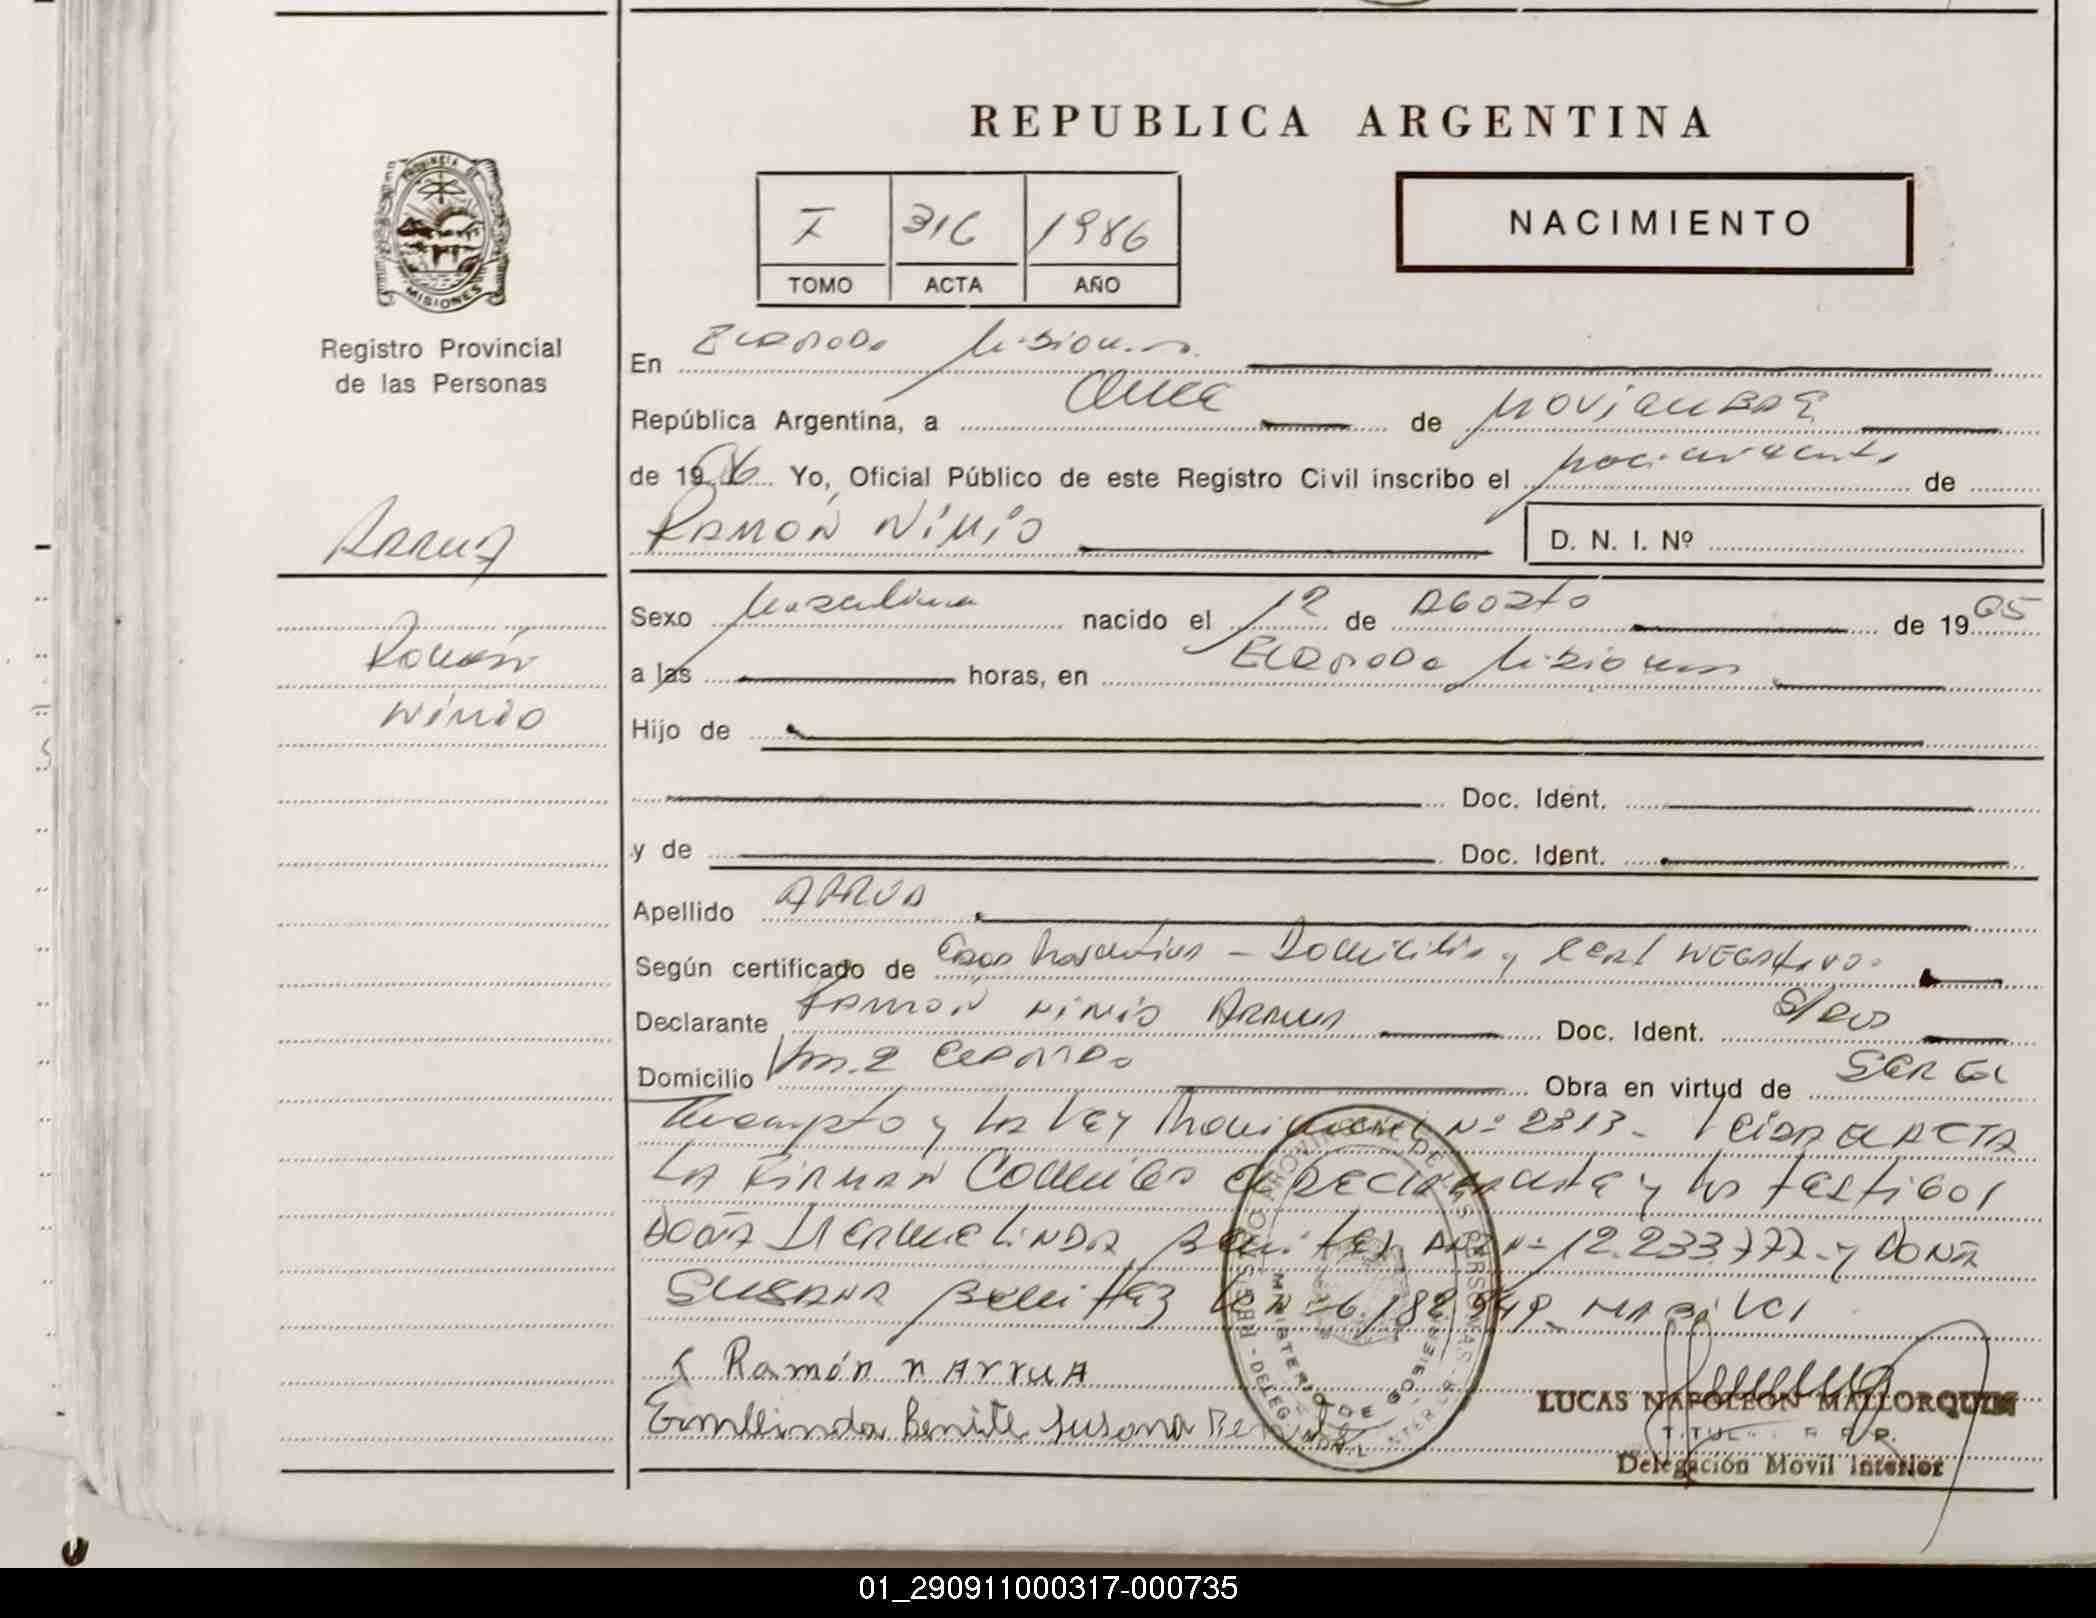 REPUBLICA ARGENTINA
I 316 1986
TOMO ACTA AÑO
NACIMIENTO
PROVINCIA DE MISIONES
Registro Provincial
de las Personas
ARRUA
Ramón
Nimio
En ELDORADO Misiones
República Argentina, a Once de NOVIEMBRE
de 1986 Yo, Oficial Público de este Registro Civil inscribo el nacimiento de
RAMÓN NIMIO
D. N. I. Nº
Sexo Masculino nacido el 12 de AGOSTO de 19 65
a las horas, en ELDORADO Misiones
Hijo de
Doc. Ident.
y de Doc. Ident.
Apellido ARRUA
Según certificado de - Domicilio y Cert NEGATIVO.
Declarante RAMÓN NIMIO ARRUA Doc. Ident.
Domicilio Km. 2 ELDORADO Obra en virtud de SER EL
y LA LEY Nº 2813 - LEIDA EL ACTA
LA FIRMAN CONMIGO el DECLARANTE y los TESTIGOS
DOÑA HERMELINDA BENITEZ DNI Nº 12.233.777 - y DOÑA
SUSANA BENITEZ
Ramón n Arrua
Ermelinda Benite Susana
REGISTRO PROVINCIAL DE LAS PERSONAS
MINISTERIO DE GOBIERNO
LUCAS NAPOLEON MALLORQUIN
Delegación Movil Interior
01_290911000317-000735